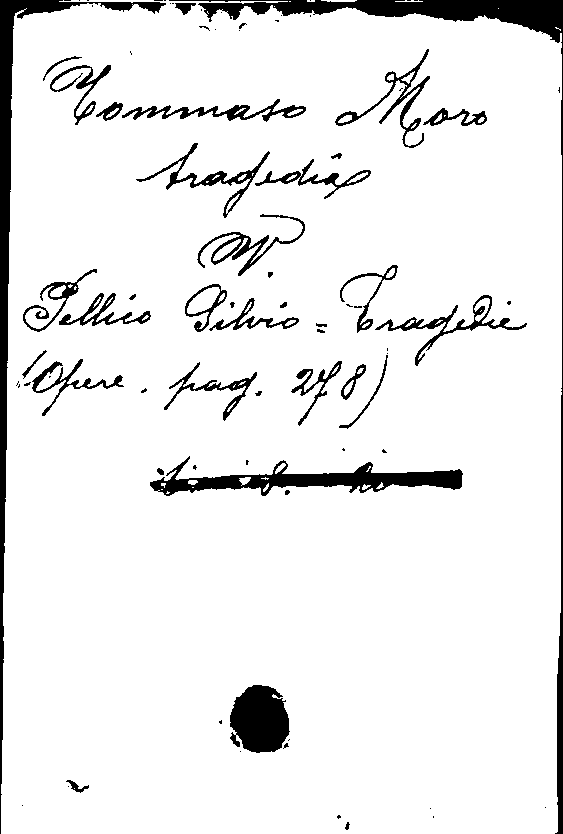 Tommaso Moro
tragedia
V.
Pellico Silvio = Tragedie
(Opere. pag. 278)